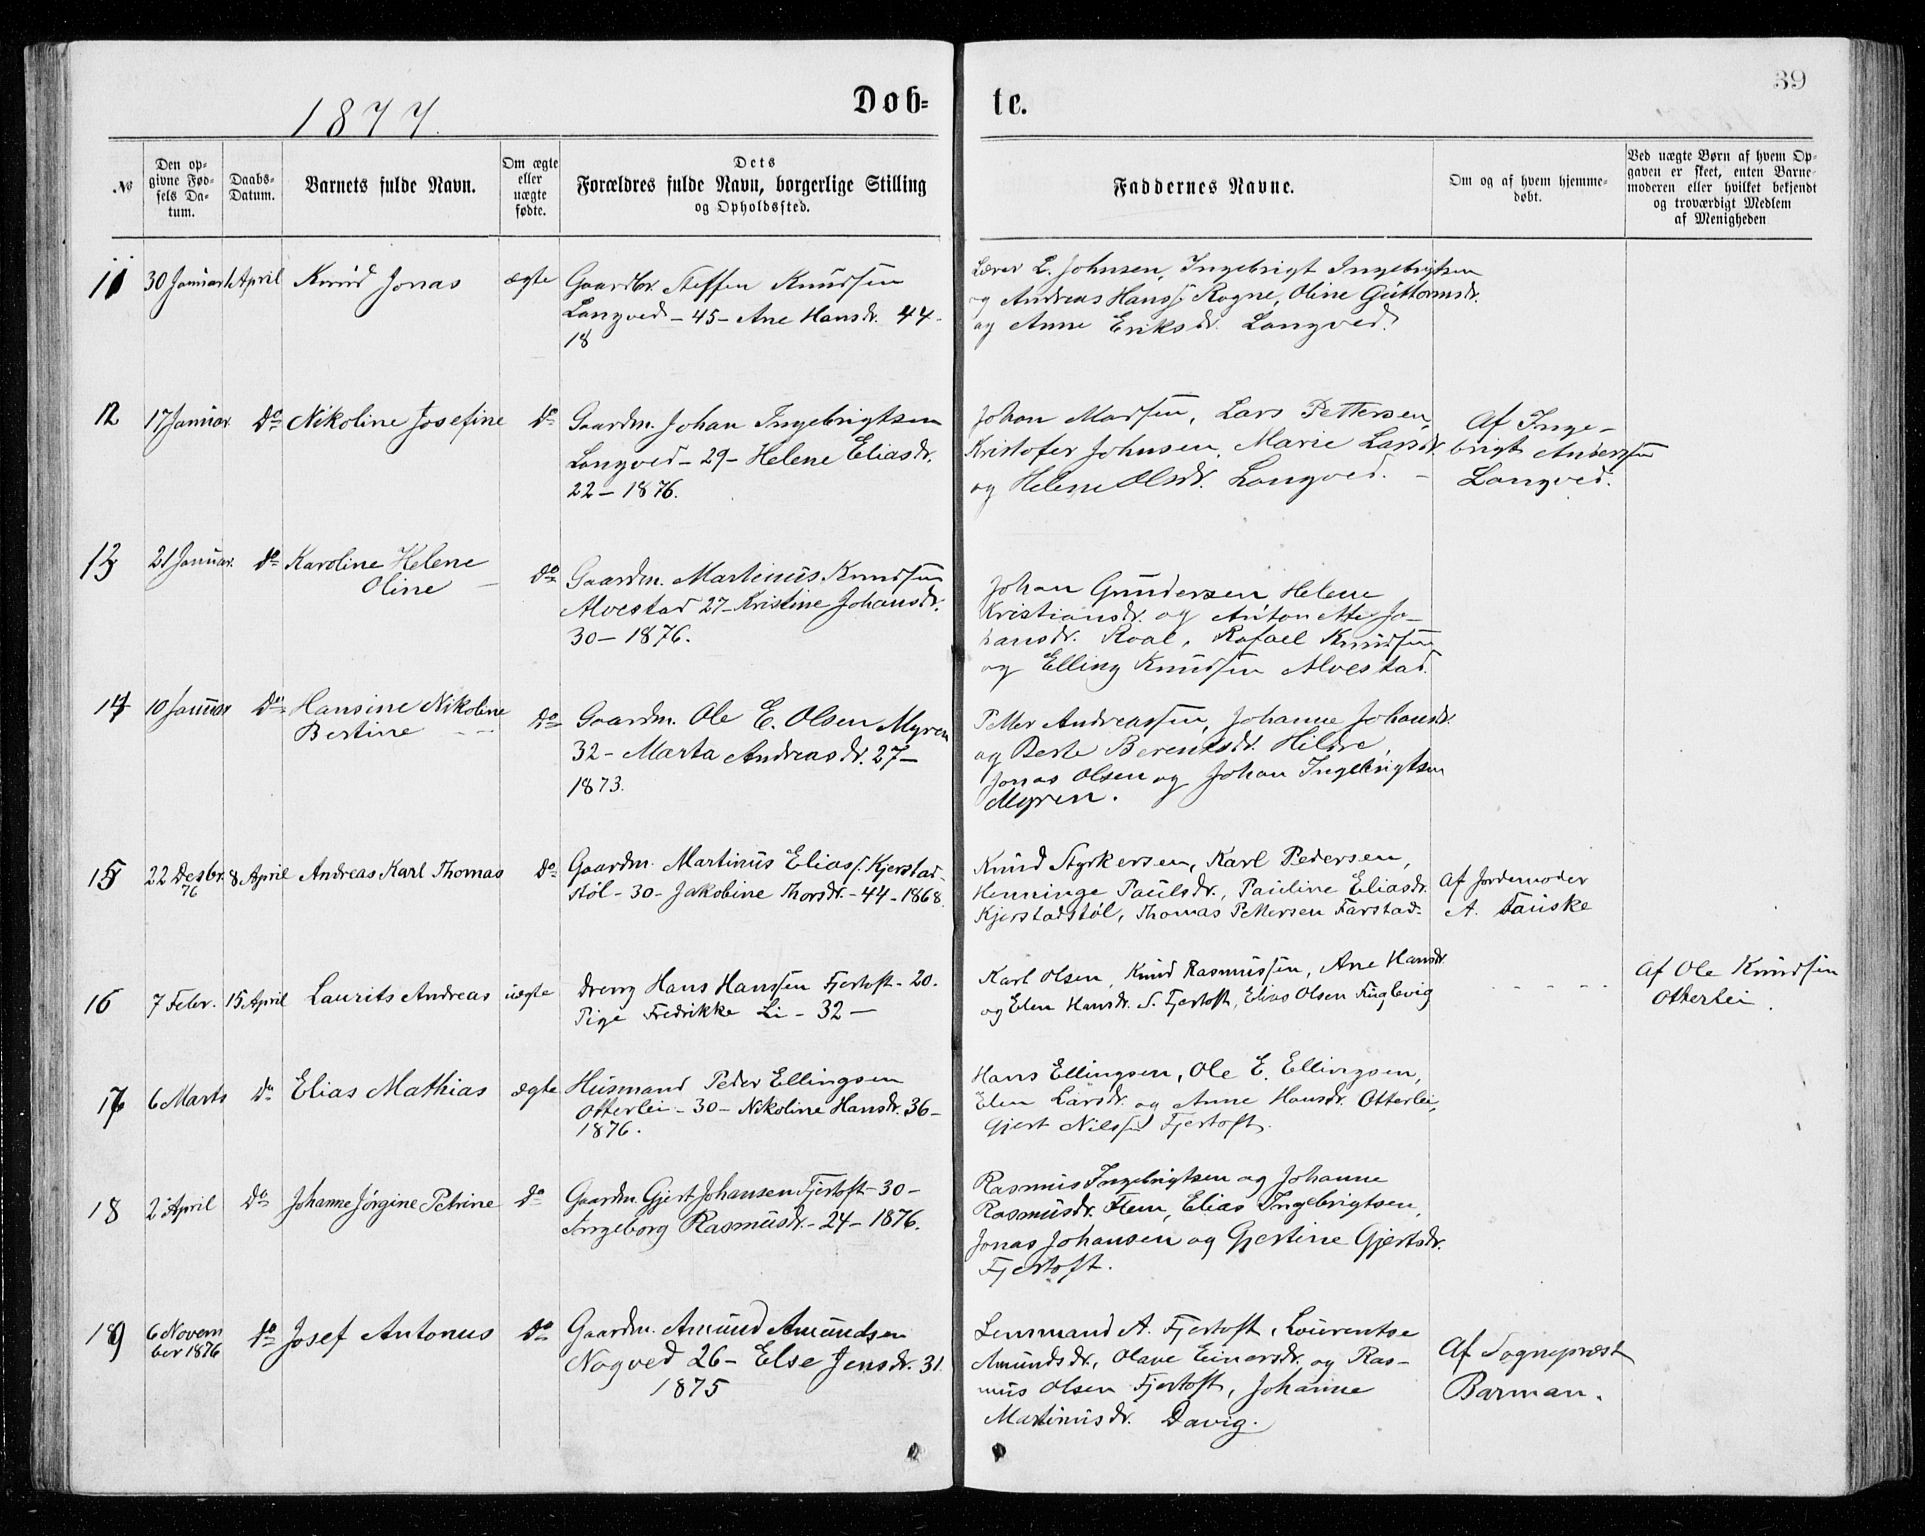 39
1877.
Døb=
te.
No
Den op-
givne Fød-
sels Da-
tum.
Daabs-
Datum.
Barnets fulde Navn.
Om ægte
eller
uægte
fødte.
Dets
Forældres fulde Navn, borgerlige Stilling
og Opholdssted.
Faddernes Navne.
Om og af hvem hjemme-
døbt.
Ved uægte Børn af hvem Op-
gaven er skeet, enten Barne-
moderen eller hvilket bekjendt
og troværdigt Medlem
af Menigheden
11
30 Januar
1 April
Knud Jonas
ægte
Gaardbr. Steffen Knudsen
Longved - 45 - Ane Hansdr. 44-
18
Lærer L. Johnsen, Ingebrigt Ingebrigtsen
og Andreas Hanss. Rogne, Oline Guttormsdr.
og Anne Eriksdr. Longved.
12
17 Januar.
Do
Nikoline Josefine
Do
Gaardm. Johan Ingebrigtsen
Longved - 29 - Helene Eliasdr.
22 - 1876.
Johan Madsen, Lars Pettersen,
Kristofer Johnsen, Marie Larsdr.
og Helene Olsdr. Longved. -
Af Inge-
brigt Anderssen
Longved.
13
21 Januar.
do
Karoline Helene
Oline -
do
Gaardm. Martinus Knudsen
Alvestad 27 - Kristine Johansdr.
30 - 1876.
Johan Gundersen Helene
Kristiansdr. og Antonette Jo-
hansdr. Roal, Rafael Knudsen
og Elling Knudsen Alvestad.
14
10 Januar
Do
Hansine Nikoline
Bertine - -
Do
Gaardm. Ole E. Olsen Myren
32 - Marta Andreasdr. 27 -
1873.
Petter Andreassen, Johanne Johansdr.
og Berte Berentsdr. Hildre,
Jonas Olsen og Johan Ingebrigtsen
Myren.
15
22 Desbr.
76
8 April
Andreas Karl Thomas
Do
Gaardm. Martinus Eliass. Kjerstad-
støl - 30 - Jakobine Thorsdr. - 44 - 1868.
Knud Styrkersen, Karl Pedersen,
Henninge Paulsdr., Pauline Eliasdr.
Kjerstadstøl, Thomas Pettersen Farstad.
Af Jordemoder
A. Tauske
16
7 Febr.
15 April
Laurits Andreas
uægte
Dreng Hans Hanssen Fjertoft - 20.
Pige Fredrikke Li - 32 -
Karl Olsen, Knud Rasmussen, Ane Hansdr.
og Elen Hansdr. S. Fjertoft, Elias Olsen Fuglevig
- - - - -
Af Ole Knudsen
Otterlei.
17
6 Marts
Do
Elias Mathias
ægte
Husmand Peder Ellingsen
Otterlei - 30 - Nikoline Hansdr. 36 -
1876.
Hans Ellingsen, Ole E. Ellingsen,
Elen Larsdr. og Anne Hansdr. Otterlei,
Gjert Nilssen Fjertoft.
18
2 April
Do
Johanne Jörgine Petrine
Do
Gaardm. Gjert Johansen Fjertoft - 30 -
Ingeborg Rasmusdr. - 24 - 1876.
Rasmus Ingebrigtsen og Johanne
Rasmusdr. Flem, Elias Ingebrigtsen,
Jonas Johansen og Gjertine Gjertsdr.
Fjertoft.
19
6 Novem
ber 1876
do
Josef Antonus
do
Gaardm. Amund Amundsen
Nogved 26 - Else Jensdr. 31.
1875
Lensmand A. Fjertoft, Lourentse
Amundsdr., Olave Einarsdr. og Ras-
mus Olsen Fjertoft, Johanne
Martinusdr. Davig.
Af Sognepræst
Barman.